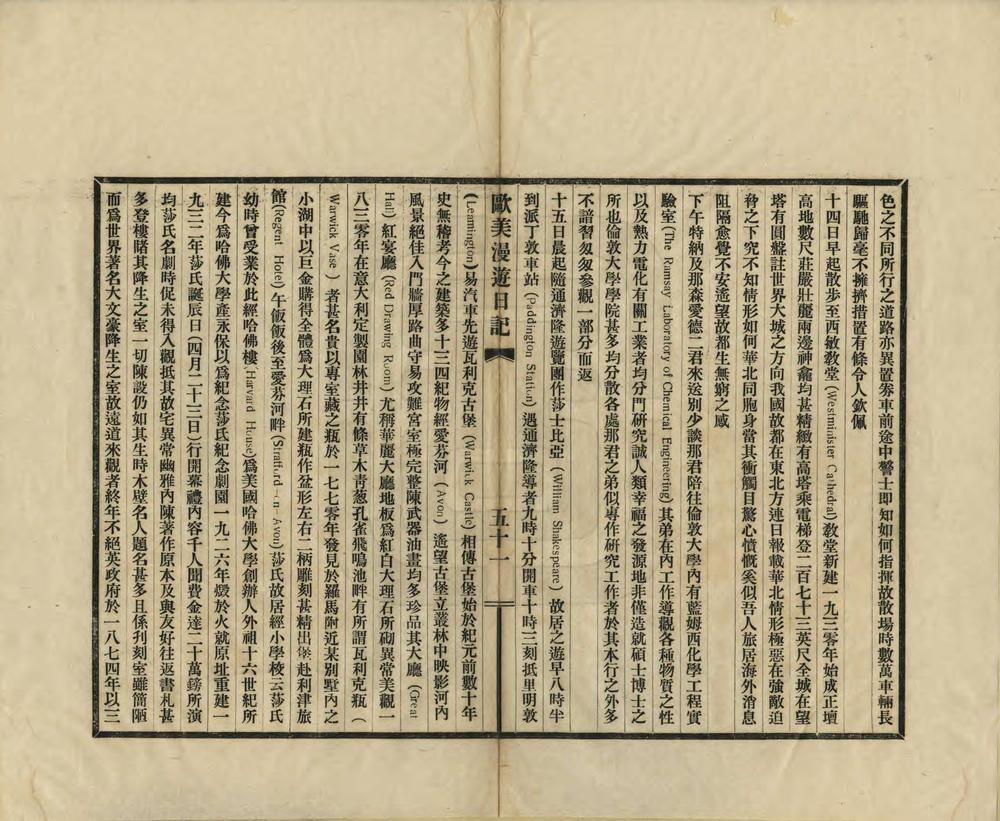 色之不同所行之道路亦異置劵車前途中警士即知如何指揮故散場時數萬車輛長
驅馳歸毫不擁擠措置有條令人欽佩
十四日早起散步至西敏敎堂(Westminister Cathedral)敎堂新建一九三零年始成正壇
高地數尺莊嚴壯麗兩邊神龕均甚精緻有高塔乘電梯登二百七十三英尺全城在望
塔有圓盤註世界大城之方向我國故都在東北方連日報載華北情形極惡在強敵迫
脅之下究不知情形如何華北同胞身當其衝觸目驚心憤慨奚似吾人旅居海外消息
阻隔愈覺不安遙望故都生無窮之感
下午特納及那森愛德二君來送別少談那君陪往倫敦大學內有藍姆西化學工程實
驗室(The Ramsay Laboratory of Chemical Engineering)其弟在內工作導觀各種物質之性
以及熱力電化有關工業者均分門研究誠人類幸福之發源地非僅造就碩士博士之
所也倫敦大學學院甚多均分散各處那君之弟似專作研究工作者於其本行之外多
不諳習匆匆參觀一部分而返
十五日晨起隨通濟隆遊覽團作莎士比亞(William Shakespeare)故居之遊早八時半
到派丁敦車站(Paddington Station)遇通濟隆導者九時十分開車十時三刻抵里明敦
歐美漫遊日記
五十一
(Leamington)易汽車先遊瓦利克古堡(Warwick Castle)相傳古堡始於紀元前數十年
史無稽考今之建築多十三四紀物經愛芬河(Avon)遙望古堡立叢林中映影河內
風景絕佳入門牆厚路曲守易攻難宮室極完整陳武器油畫均多珍品其大廳(Great
Hall)紅宴廳(Red Drawing Room)尤稱華麗大廳地板爲紅白大理石所砌異常美觀一
八三零年在意大利定製園林井井有條草木靑葱孔雀飛鳴池畔有所謂瓦利克瓶(
Warwick Vase)者甚名貴以專室藏之瓶於一七七零年發見於羅馬附近某別墅內之
小湖中以巨金購得全體爲大理石所建瓶作盆形左右二柄雕刻甚精出堡赴利津旅
館(Regent Hotel)午飯飯後至愛芬河畔(Stratford-on-Avon)莎氏故居經小學校云莎氏
幼時曾受業於此經哈佛樓(Harvard House)爲美國哈佛大學創辦人外祖十六世紀所
建今爲哈佛大學產永保以爲紀念莎氏紀念劇園一九二六年燬於火就原址重建一
九三二年莎氏誕辰日(四月二十三日)行開幕禮內容千人聞費金達二十萬鎊所演
均莎氏名劇時促未得入觀抵其故宅異常幽雅內陳著作原本及與友好往返書札甚
多登樓睹其降生之室一切陳設仍如其生時木壁名人題名甚多且係利刻室雖簡陋
而爲世界著名大文豪降生之室故遠道來觀者終年不絕英政府於一八七四年以三